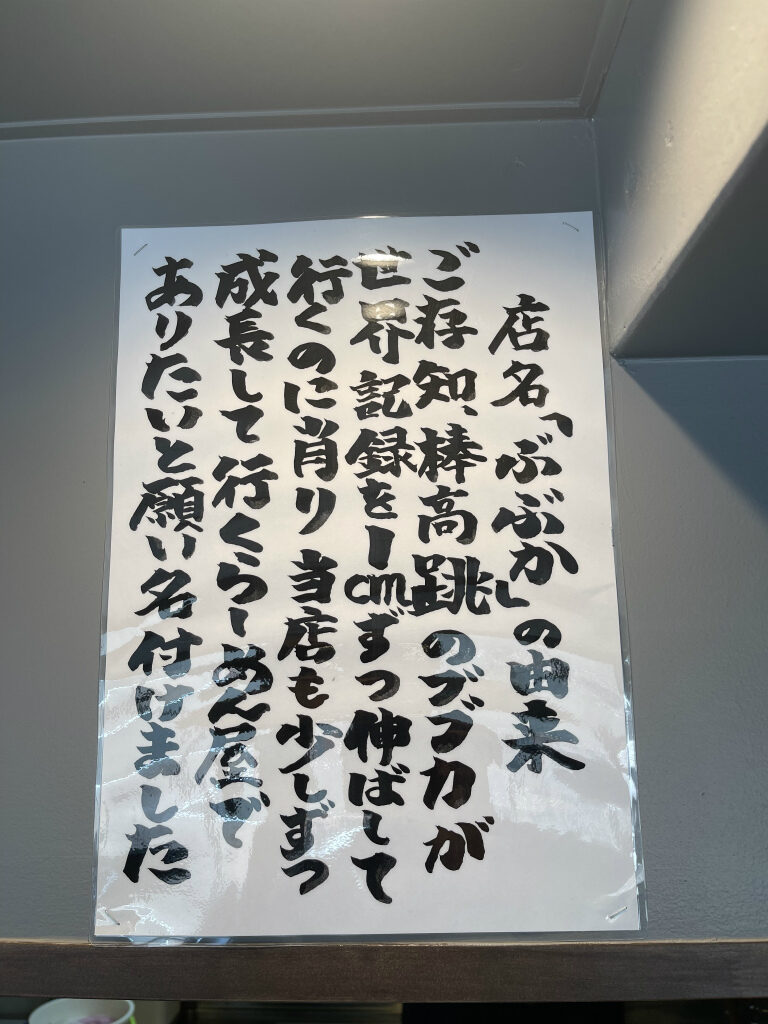 店名「ぶぶか」の由来
ご存知、棒高跳のブブカが
世界記録を1cmずつ伸ばして
行くのに肖り 当店も少しずつ
成長して行くらーめん屋で
ありたいと願い名付けました